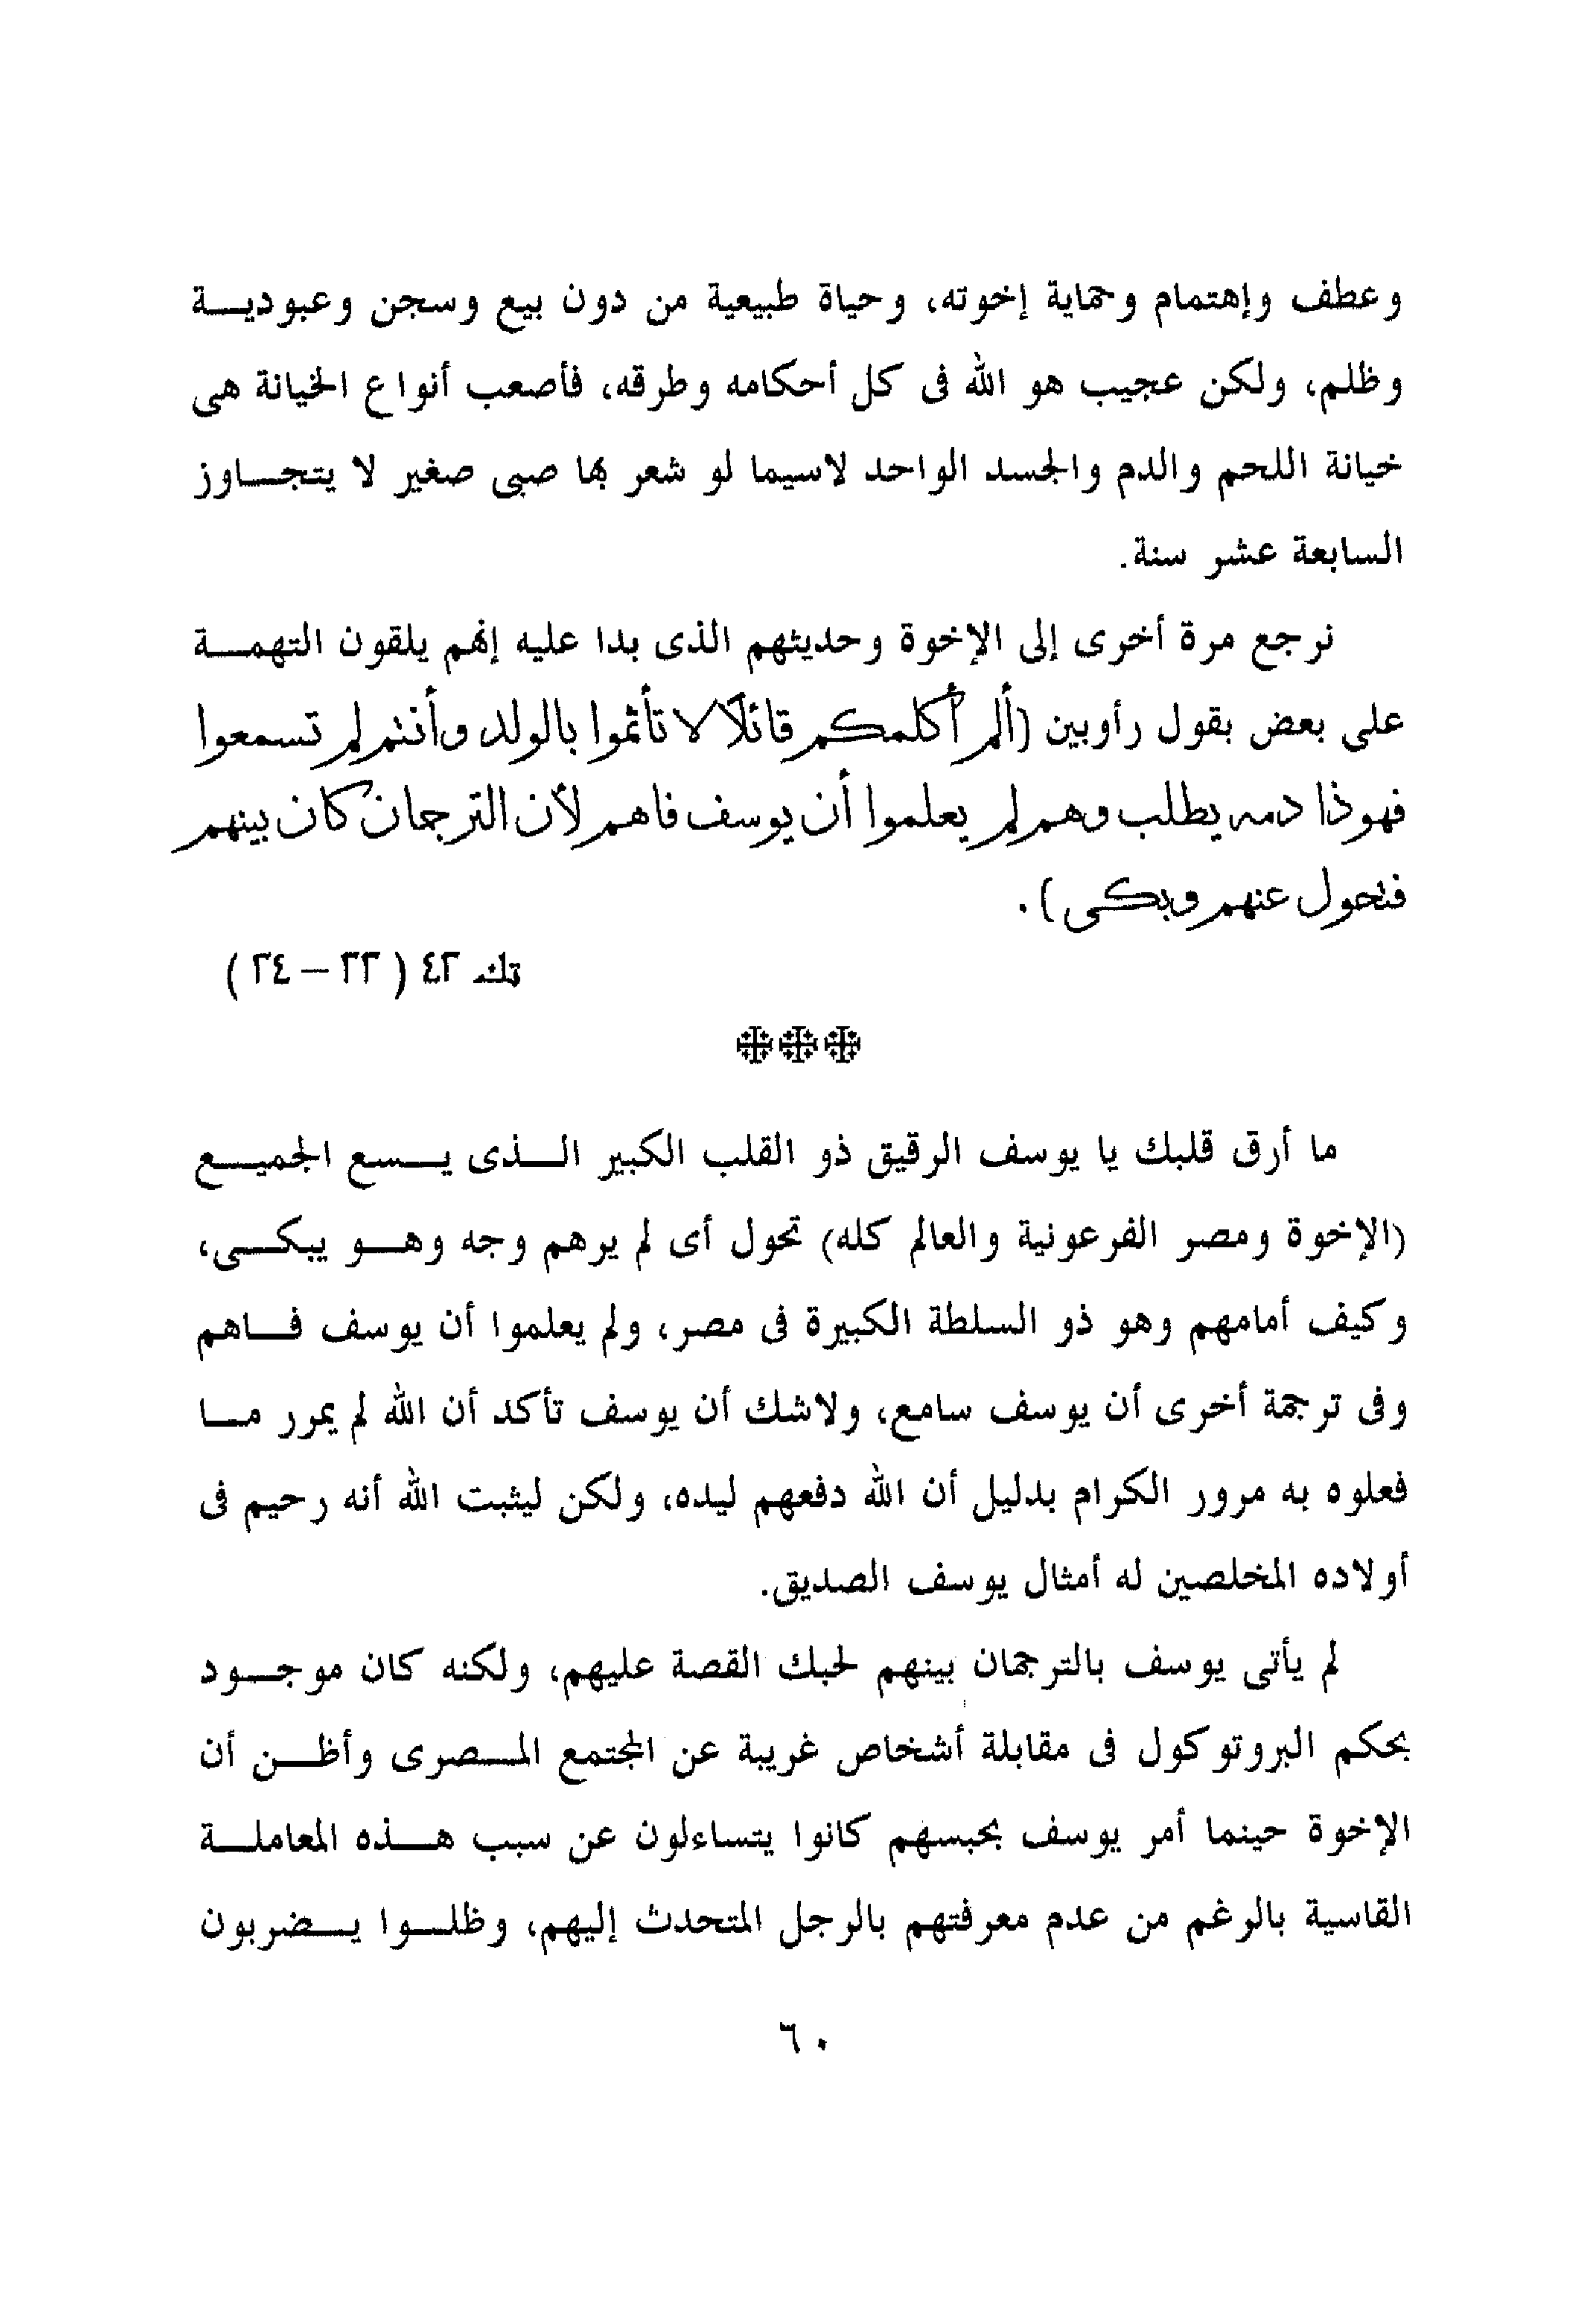 وعطف وإهتمام وحماية إخوته، وحياة طبيعية من دون بيع وسجن وعبودية
وظلم، ولكن عجيب هو الله فى كل أحكامه وطرقه، فأصعب أنواع الخيانة هى
خيانة اللحم والدم والجسد الواحد لاسيما لو شعر بها صبى صغير لا يتجاوز
السابعة عشر سنة.
نرجع مرة أخرى إلى الإخوة وحديثهم الذى بدا عليه إنهم يلقون التهمة
على بعض بقول رأوبين (ألم أكلمكم قائلًا لا تأثموا بالولد وأنتم لم تسمعوا
فهوذا دمه يطلب وهم لم يعلموا أن يوسف فاهم لأن الترجمان كان بينهم
فتحول عنهم وبكى).
تك ٤٢ ( ٢٣ – ٢٤ )
ما أرق قلبك يا يوسف الرقيق ذو القلب الكبير الذى يسع الجميع
(الإخوة ومصر الفرعونية والعالم كله) تحول أى لم يرهم وجه وهو يبكى،
وكيف أمامهم وهو ذو السلطة الكبيرة فى مصر، ولم يعلموا أن يوسف فاهم
وفى ترجمة أخرى أن يوسف سامع، ولاشك أن يوسف تأكد أن الله لم يمرر ما
فعلوه به مرور الكرام بدليل أن الله دفعهم ليده، ولكن ليثبت الله أنه رحيم فى
أولاده المخلصين له أمثال يوسف الصديق.
لم يأتى يوسف بالترجمان بينهم لحبك القصة عليهم، ولكنه كان موجود
بحكم البروتوكول فى مقابلة أشخاص غريبة عن المجتمع المصرى وأظن أن
الإخوة حينما أمر يوسف بحبسهم كانوا يتساءلون عن سبب هذه المعاملة
القاسية بالرغم من عدم معرفتهم بالرجل المتحدث إليهم، وظلوا يضربون
٦٠